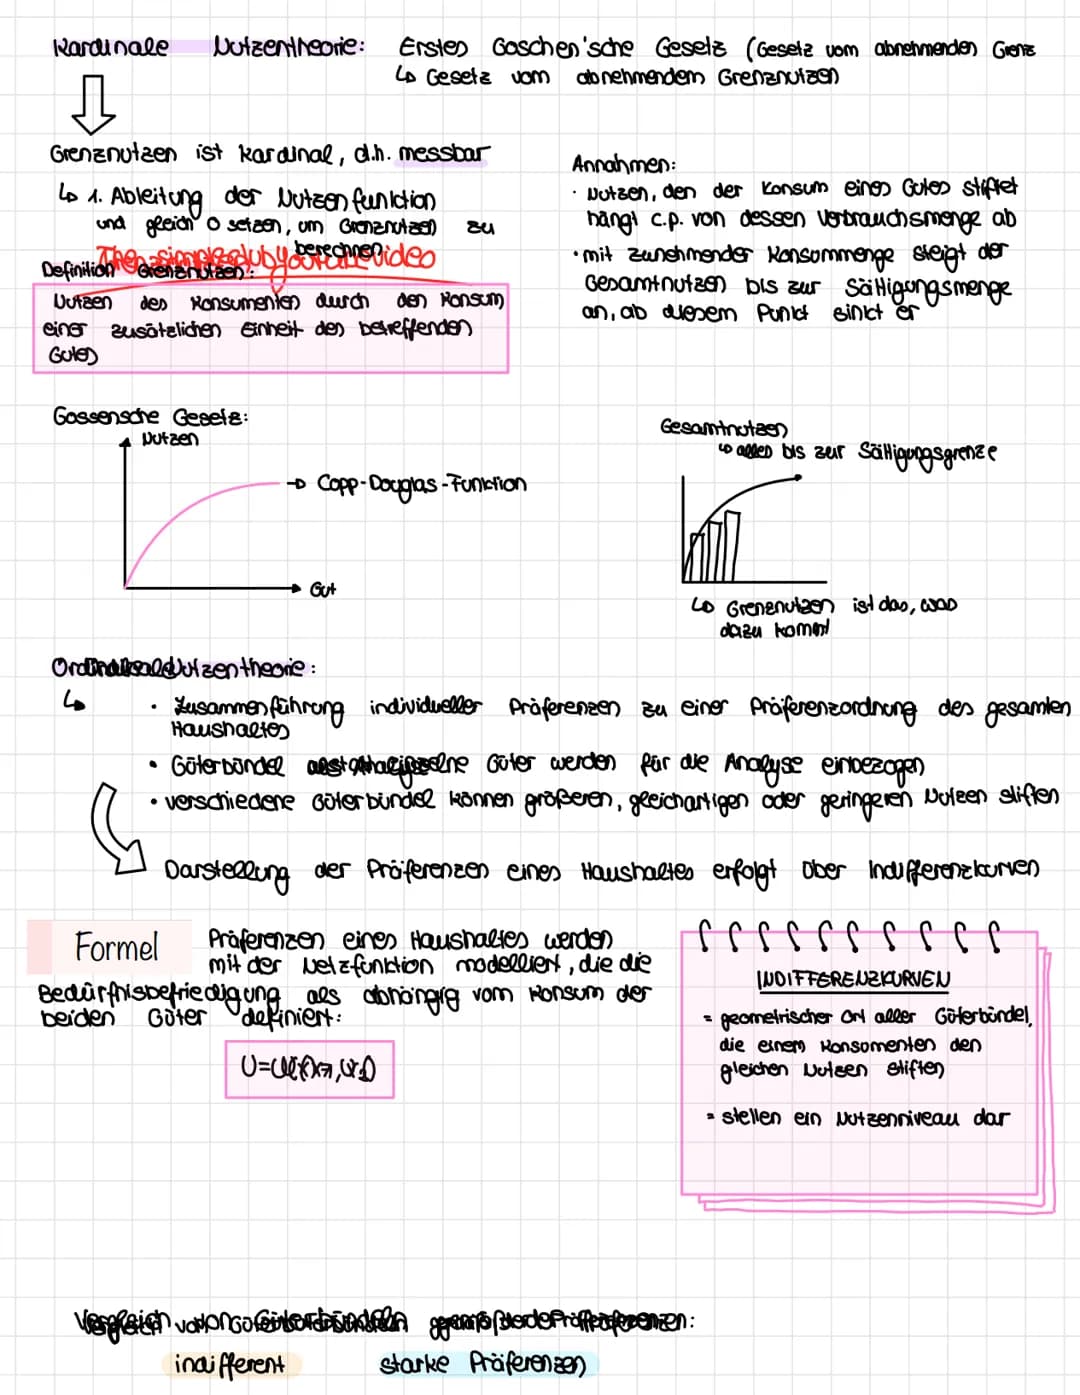 Kardinale Nutzentheorie: Erstes Goschen'sche Gesetz (Gesetz vom abnehmenden Grenz
↳ Gesetz vom abnehmendem Grenznutzen
Grenznutzen ist kardinal, d.h. messbar
↳ 1. Ableitung der Nutzenfunktion
und gleich 0 setzen, um Grenznutzen zu
berechnen
The simpleclub youtube video
Definition Grenznutzen:
Nutzen des Konsumenten durch den Konsum
einer zusätzlichen Einheit des betreffenden
Gutes
Annahmen:
· Nutzen, den der Konsum eines Gutes stiftet
hängt c.p. von dessen Verbrauchsmenge ab
· mit zunehmender Konsummenge steigt der
Gesamtnutzen bis zur Sättigungsmenge
an, ab diesem Punkt sinkt er
Gossensche Gesetz:
Nutzen
→ Copp-Douglas-Funktion
Gut
Gesamtnutzen
↳ alles bis zur Sättigungsgrenze
↳ Grenznutzen ist das, was
dazu kommt
Ordinale Nutzentheorie:
↳ • Zusammenführung individueller Präferenzen zu einer Präferenzordnung des gesamten
Haushaltes
• Güterbündel anstatt einzelne Güter werden für die Analyse einbezogen
• verschiedene Güterbündel können größeren, gleichartigen oder geringeren Nutzen stiften
Darstellung der Präferenzen eines Haushaltes erfolgt über Indifferenzkurven
Formel
Präferenzen eines Haushaltes werden
mit der Netzfunktion modelliert, die die
Bedürfnisbefriedigung als abhängig vom Konsum der
beiden Güter definiert:
INDIFFERENZKURVEN
= geometrischer Ort aller Güterbündel,
die einem Konsumenten den
gleichen Nutzen stiften
= stellen ein Nutzenniveau dar
Vergleich von Güterbündeln gemäß der Präferenzen:
indifferent starke Präferenzen